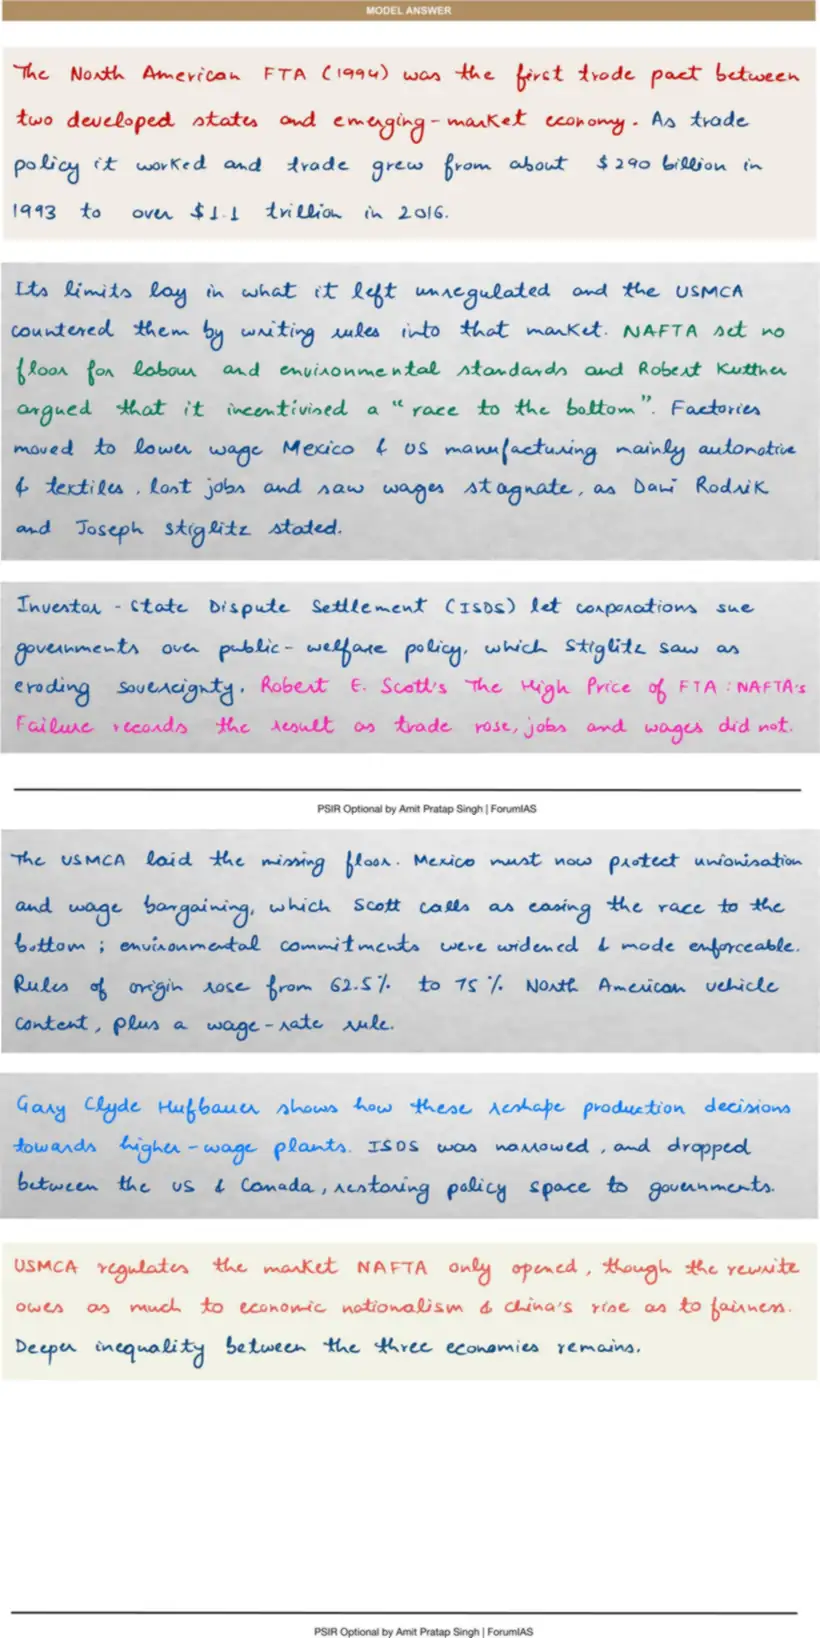 MODEL ANSWER
The North American FTA (1994) was the first trade pact between
two developed states and emerging-market economy. As trade
policy it worked and trade grew from about $290 billion in
1993 to over $1.1 trillion in 2016.
Its limits lay in what it left unregulated and the USMCA
countered them by writing rules into that market. NAFTA set no
floor for labour and environmental standards and Robert Kuttner
argued that it incentivised a "race to the bottom". Factories
moved to lower wage Mexico & US manufacturing mainly automotive
& textiles, lost jobs and saw wages stagnate, as Dani Rodrik
and Joseph Stiglitz stated.
Investor-State Dispute Settlement (ISDS) let corporations sue
governments over public-welfare policy, which Stiglitz saw as
eroding sovereignty. Robert E. Scott's The High Price of FTA: NAFTA's
Failure records the result as trade rose, jobs and wages did not.
PSIR Optional by Amit Pratap Singh | ForumIAS
The USMCA laid the missing floor. Mexico must now protect unionisation
and wage bargaining, which Scott calls as easing the race to the
bottom; environmental commitments were widened & made enforceable.
Rules of origin rose from 62.5% to 75% North American vehicle
content, plus a wage-rate rule.
Gary Clyde Hufbauer shows how these reshape production decisions
towards higher-wage plants. ISDS was narrowed, and dropped
between the US & Canada, restoring policy space to governments.
USMCA regulates the market NAFTA only opened, though the rewrite
owes as much to economic nationalism & China's rise as to fairness.
Deeper inequality between the three economies remains.
PSIR Optional by Amit Pratap Singh | ForumIAS